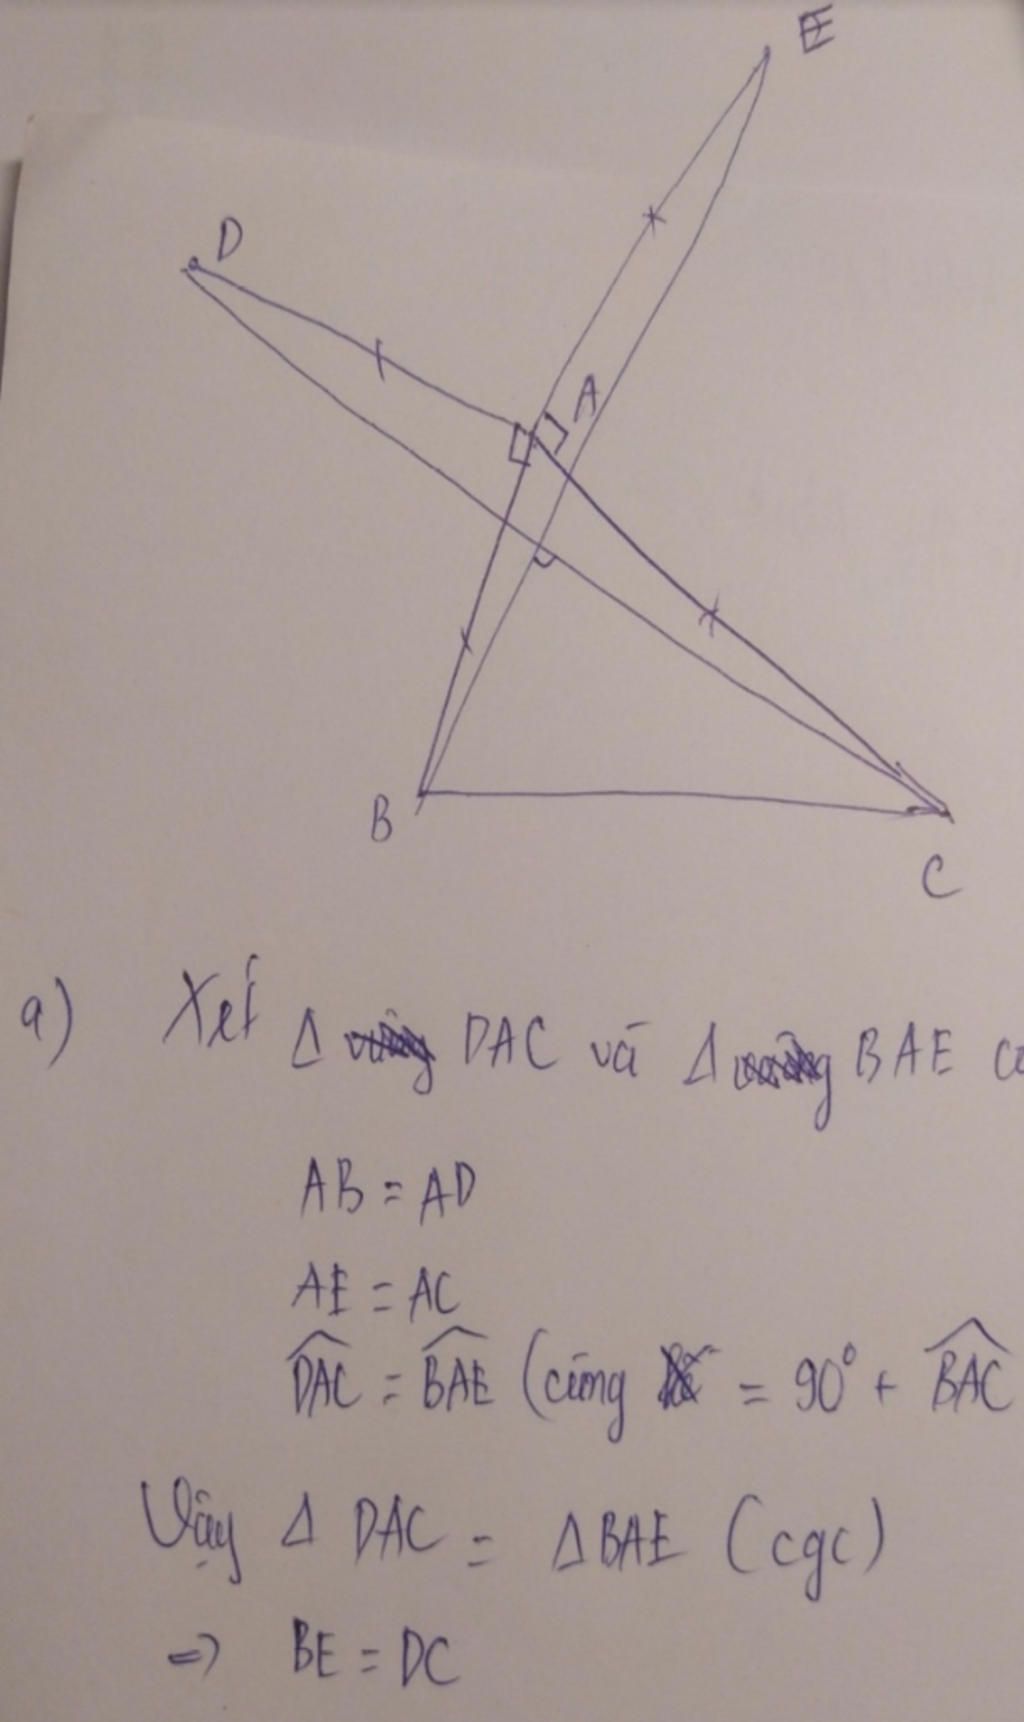 E
D
A
B
C
a) Xét Δ DAC và Δ BAE
AB = AD
AE = AC
DAC = BAE (cùng = 90° + BAC
Vậy Δ DAC = Δ BAE (cgc)
=> BE = DC